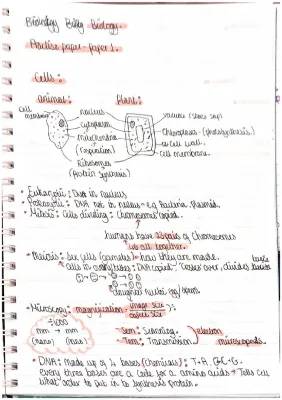 Biology Biology.
Practise paper - paper 1.
Cells:
animal: Plant:
cell membrane
nucleus
vacuole (stores sap)
cytoplasm
Chloroplasts - (photosynthesis)
mitochondria
cell wall.
(respiration)
cell membrane.
Ribosomes
(Protein synthesis)
• Eukaryotic: DNA in nucleus
• Prokaryotic: DNA not in nucleus - e.g bacteria. plasmid.
• Mitosis: Cells dividing: chromosomes copied.
humans have 23 pairs of chromosomes
46 all together.
• Meiosis: Sex cells (gametes) - how they are made.
DNA copied - crosses over, divides
egg/sperm.
• Microscopy: magnification: image size
object size
÷1000
mm → nm
(nano)
- Sem: Scanning.
- Tem: Transmission.
electron
microscopes.
• DNA: made up of 4 bases (chemicals): T-A. C-G.
every three bases are a code for a amino acids → Tells cell
what order to put in to synthesis protein.